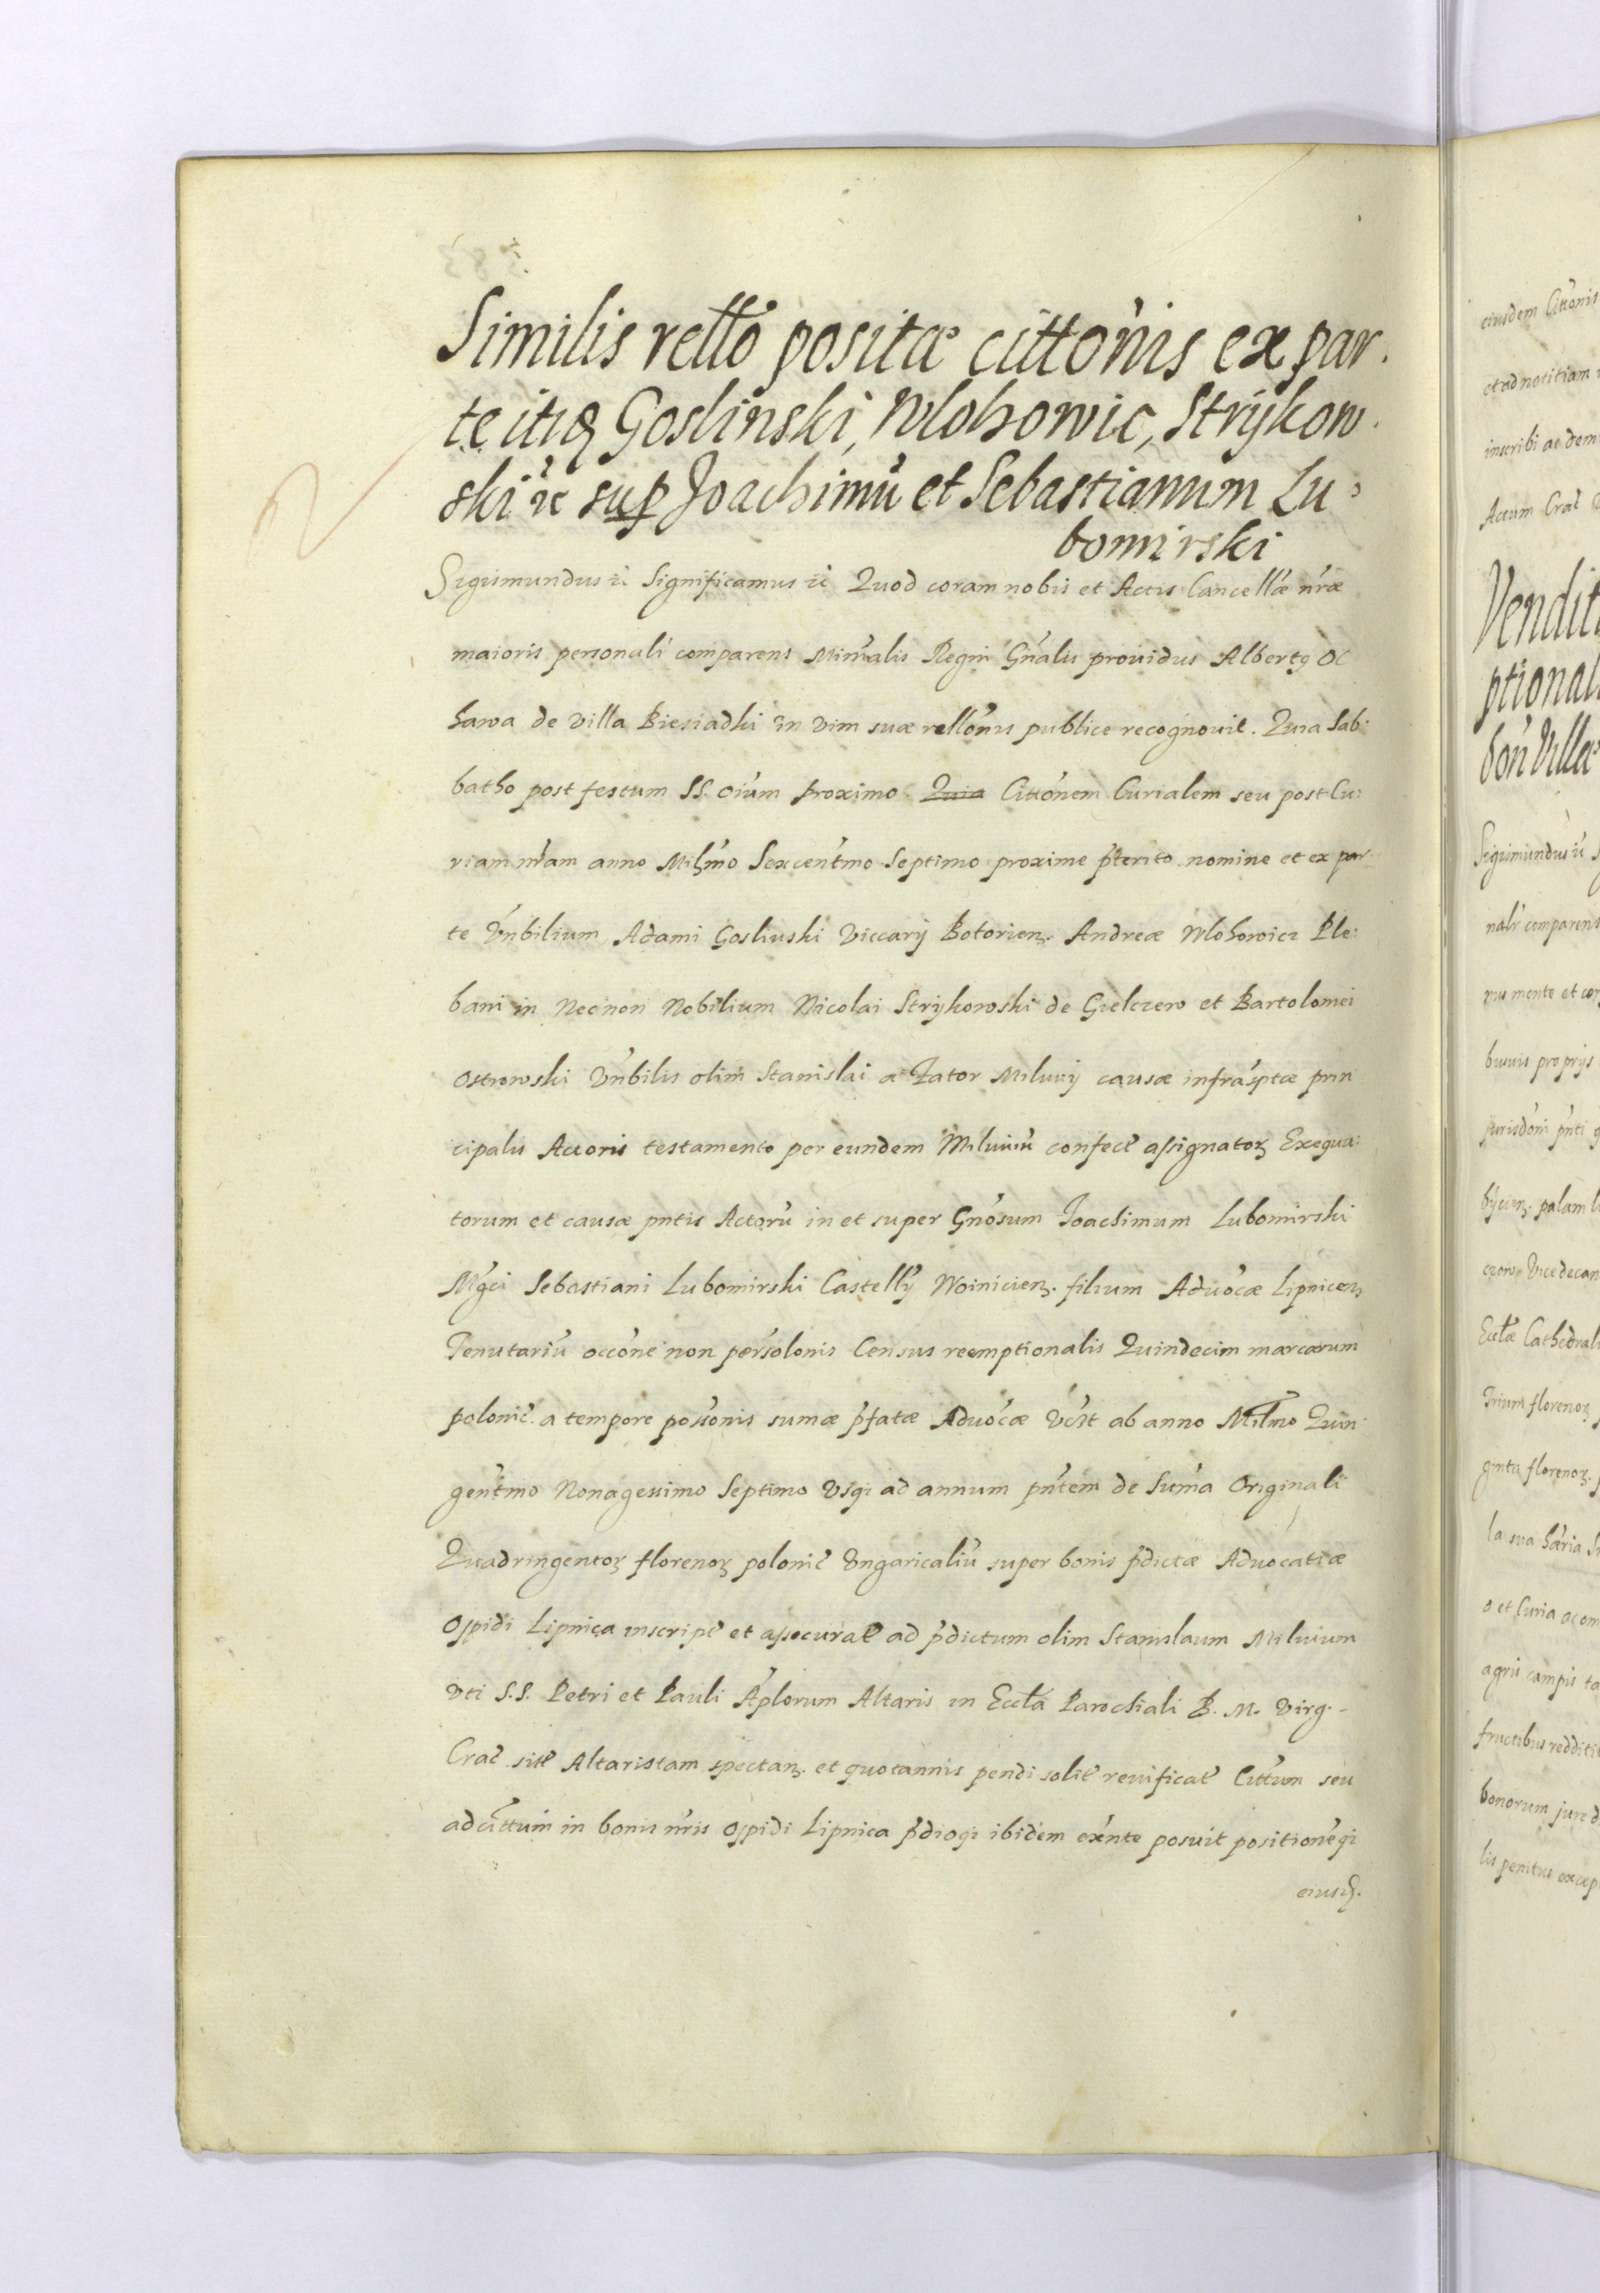 Similis rello positæ cittonis ex par.
te itiꝗ Goslinski, Wlohowic, Strijkow.
ski ꝛc sup Joachimū et Sebastianum Lu
bomirski
Sigismundus ꝛc Significamus ꝛc Quod coram nobis et Actis Cancellæ nræ
maioris personali comparens Minrālis Regni Gnalis providus Albertꝯ Oc
hawa de villa Biesiadki in vim suæ rellonis publice recognovit. Quia Sab:
batho post festum SS. oium proximo Quia Cittonem Curialem seu post Cu:
riam nram anno Millmo Sexcentmo Septimo proxime pterito nomine et ex par
te Vnbilium Adami Gosliński Viccarij Botorien. Andreæ Wlohowicz Ple:
bani in Necnon Nobilium Nicolai Strijkowski de Gielczew et Bartolomei
Ostrowski Vnbilis olim Stanislai a Zator Miluij causæ infrasptæ prin
cipalis Actoris testamento per eundem Miluiū confect assignatoꝝ Exequu:
torum et causæ pntis Actorū in et super Gnosum Joachimum Lubomirski
Mgci Sebastiani Lubomirski Castellj Woinicien. filium Advocæ Lipnicen
Tenutariū occone non persolonis Census reemptionalis Quindecim marcarum
polonic. a tempore possonis sumæ pfatæ Advocæ Vczt ab anno Millmo Quin
gentmo Nonagessimo Septimo Vsqi ad annum pntem de Suma Originali
Quadringentoꝝ florenoꝝ polonic Vngaricaliū super bonis pdictæ Advocatiæ
Oppidi Lipnica inscript et assecurat ad pdictum olim Stanislaum Miluium
Vti S.S. Petri et Pauli Aplorum Altaris in Eccla Parochiali B. M. Virg.
Crac sitt Altaristam spectan. et quotannis pendi solit reuificat Cittum seu
adcittum in bonis nris Oppidi Lipnica pdioqi ibidem exnte posuit positioneqi
eiusꝗ.
eiusdem Cittonis
et ad notitiam
inscribi ac dem
Actum Crac
Vendit
ptional
bon Villæ
Sigismundus ꝛc
nalr comparens
pu mente et cor
buuis proprijs
jurisdoni pnti
bijcien. palam
Vicedecan
Ecclæ Cathedral
Trium florenoꝝ
ginta florenoꝝ.
la sua hæria
o et Curia ac om
agris campis ta
fructibus redditi
bonorum jure d
lis penitus excep